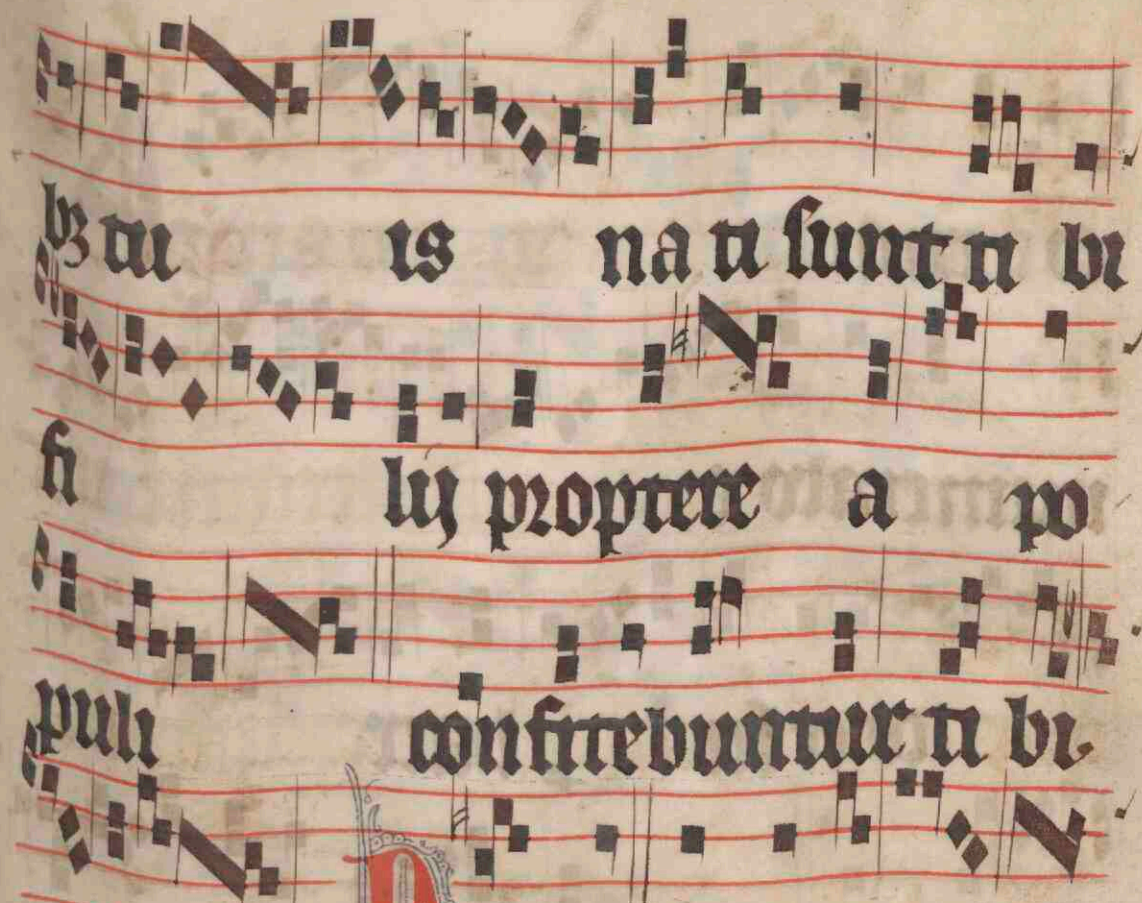 bꝫ tu is na ti sunt ti bi
fi lij proptere a po
puli confitebuntur ti bi